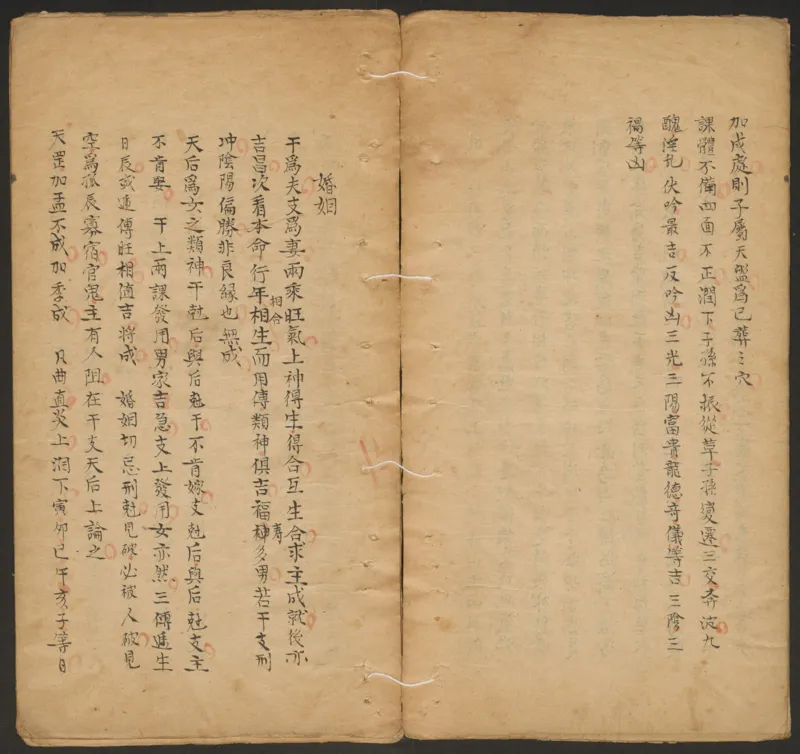 加戌處則子屬天盤爲已葬之穴
課體不備四面不正潤下子孫不振從革子孫變遷三交奔波九
醜淫乱伏吟最吉反吟凶三光三陽富貴龍德奇儀等吉三陰三
禍等凶
婚姻
干爲夫支爲妻兩乘旺氣上神得生得合互生合求主成就後亦
吉昌次看本命行年相生相合而用傳類神俱吉福壽多男若干支刑
冲陰陽偏勝非良緣也無成
天后爲女之類神干尅后與后尅干不肯嫁支尅后與后尅支主
不肯娶 干上兩課發用男家吉急支上發用女亦然三傳遞生
日辰或連傳旺相値吉將成 婚姻切忌刑尅鬼破必被人破見
空爲孤辰寡宿官鬼主有人阻在干支天后上論之
天罡加孟不成加季成 凡曲直炎上潤下寅卯巳午亥子等日